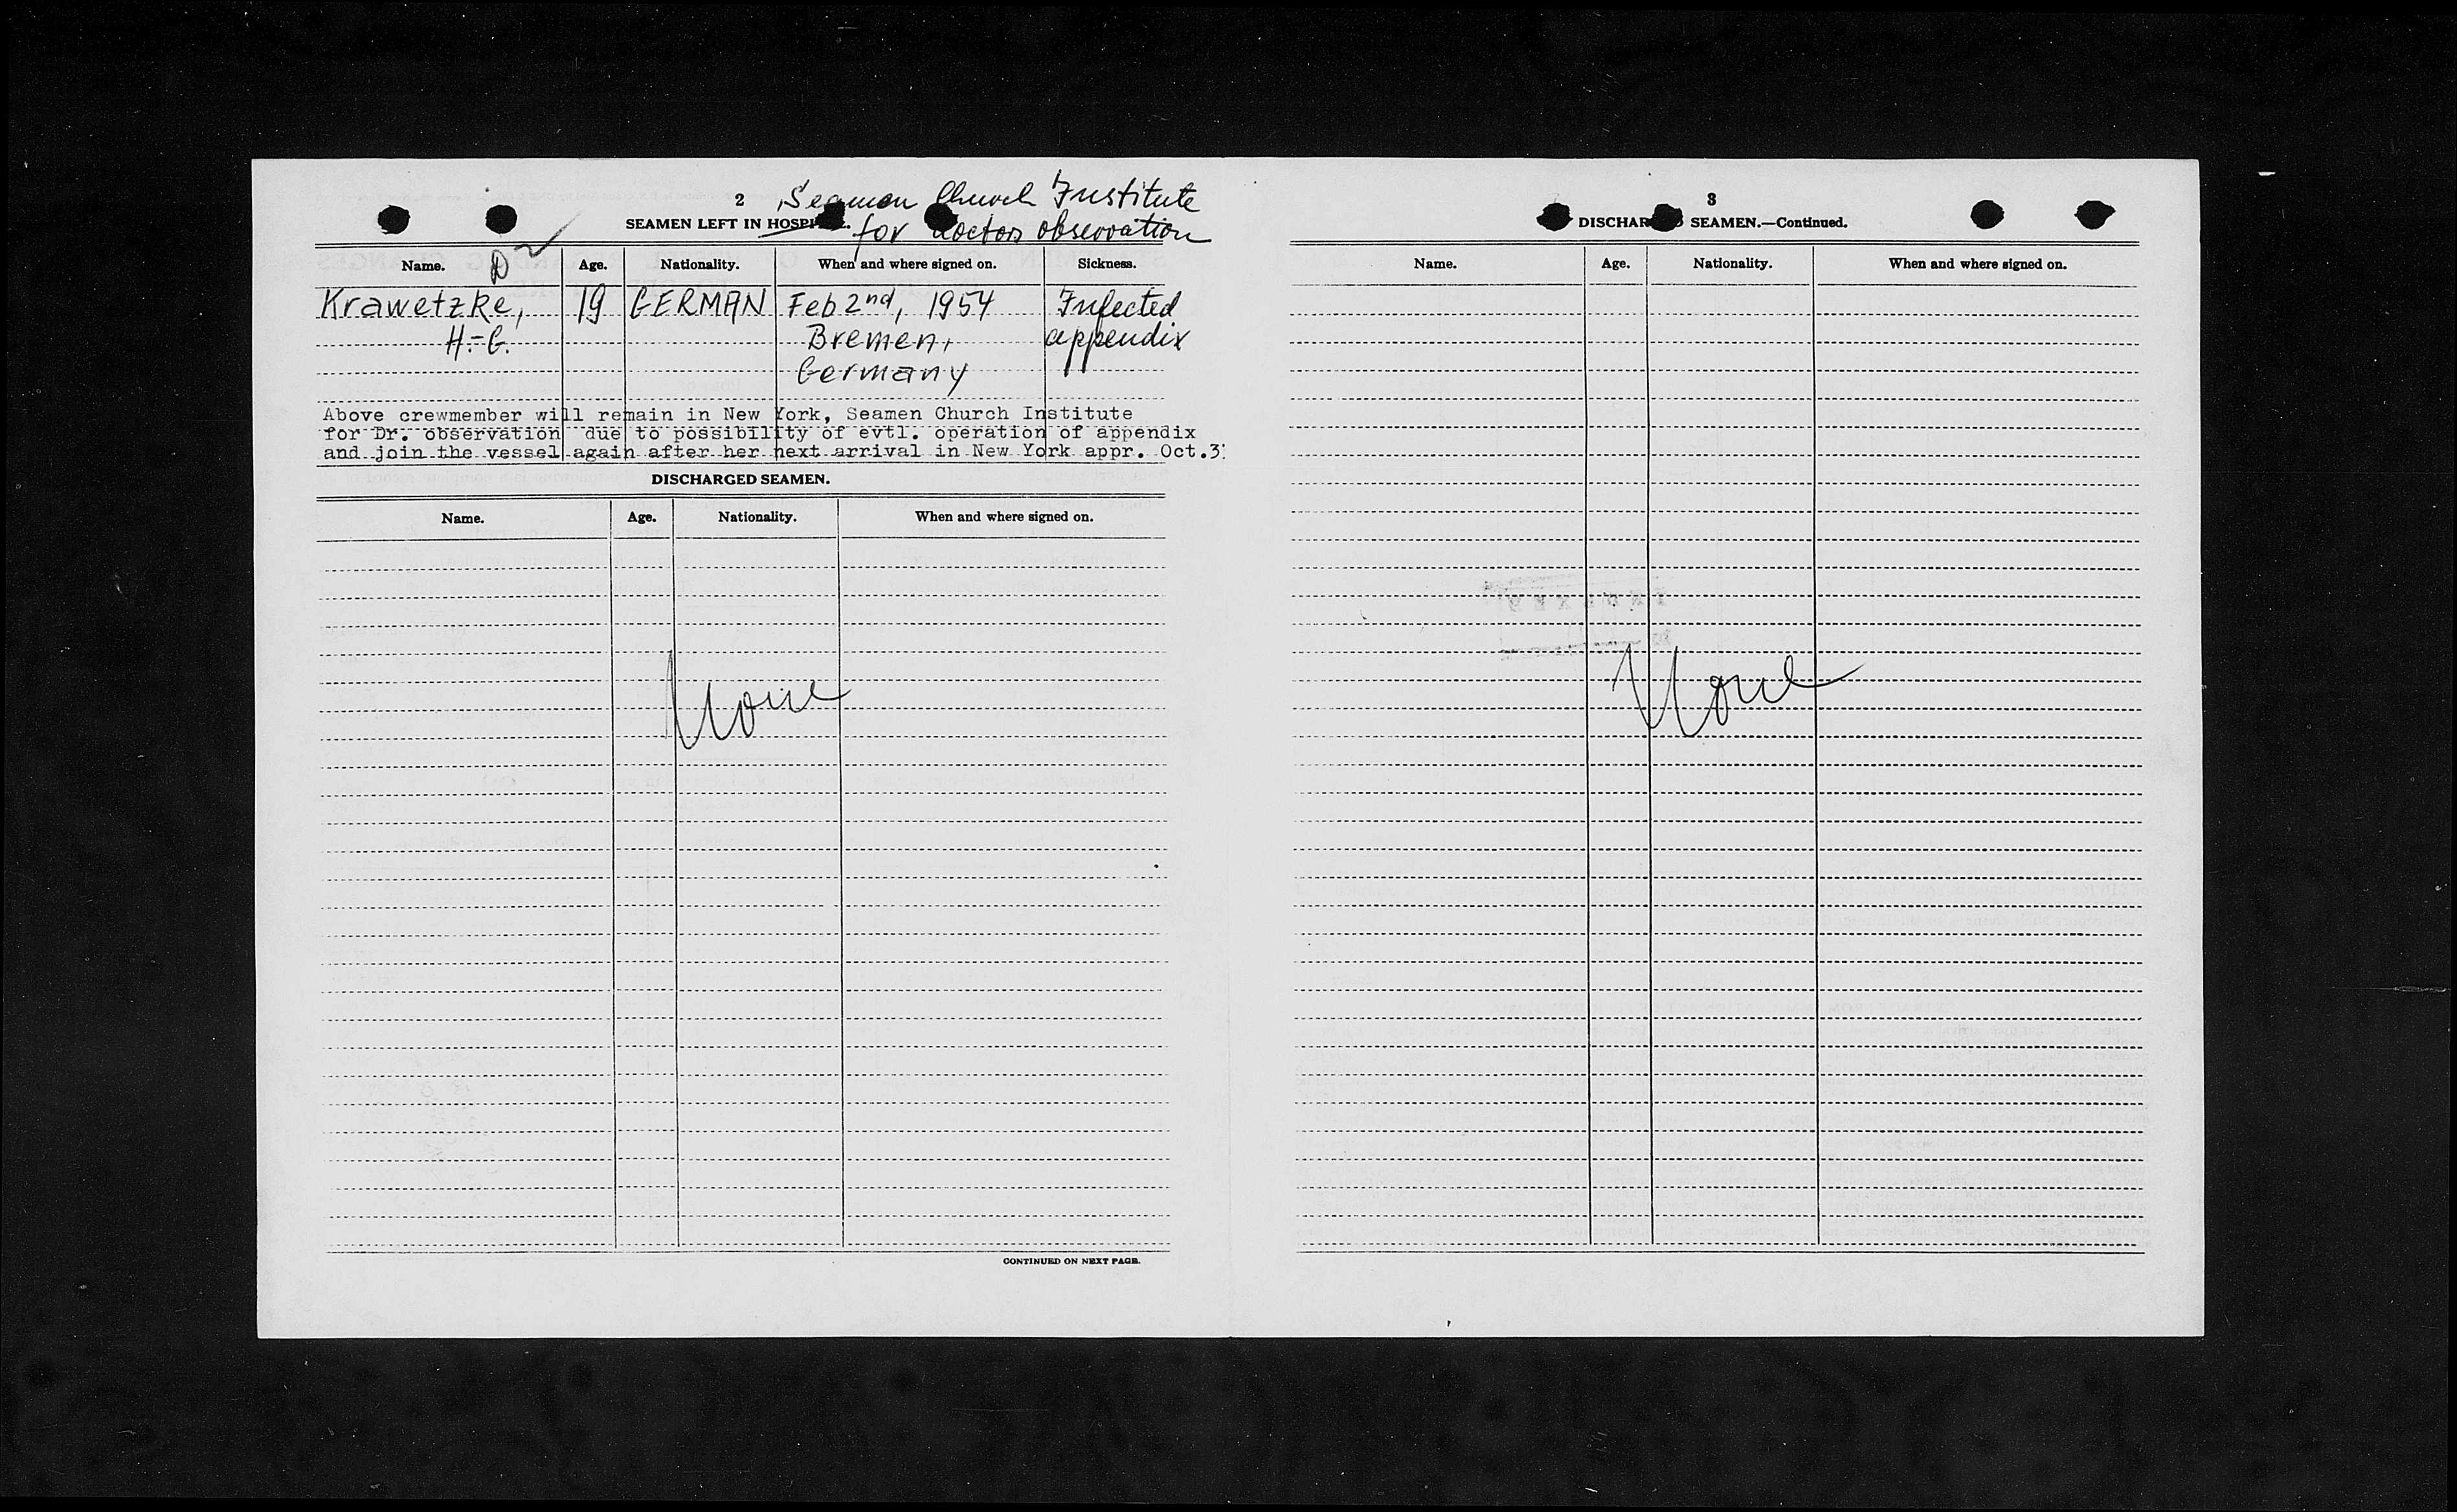 2
Seamen Church Institute
SEAMEN LEFT IN HOSPI
for doctors observation
D
Name. Age. Nationality. When and where signed on. Sickness.
Krawetzke, 19 GERMAN Feb 2nd, 1954 Infected
H.-G. Bremen, appendix
Germany
Above crewmember will remain in New York, Seamen Church Institute
for Dr. observation due to possibility of evtl. operation of appendix
and join the vessel again after her next arrival in New York appr. Oct.3
DISCHARGED SEAMEN.
Name. Age. Nationality. When and where signed on.
None
CONTINUED ON NEXT PAGE.
3
DISCHAR SEAMEN.—Continued.
Name. Age. Nationality. When and where signed on.
None